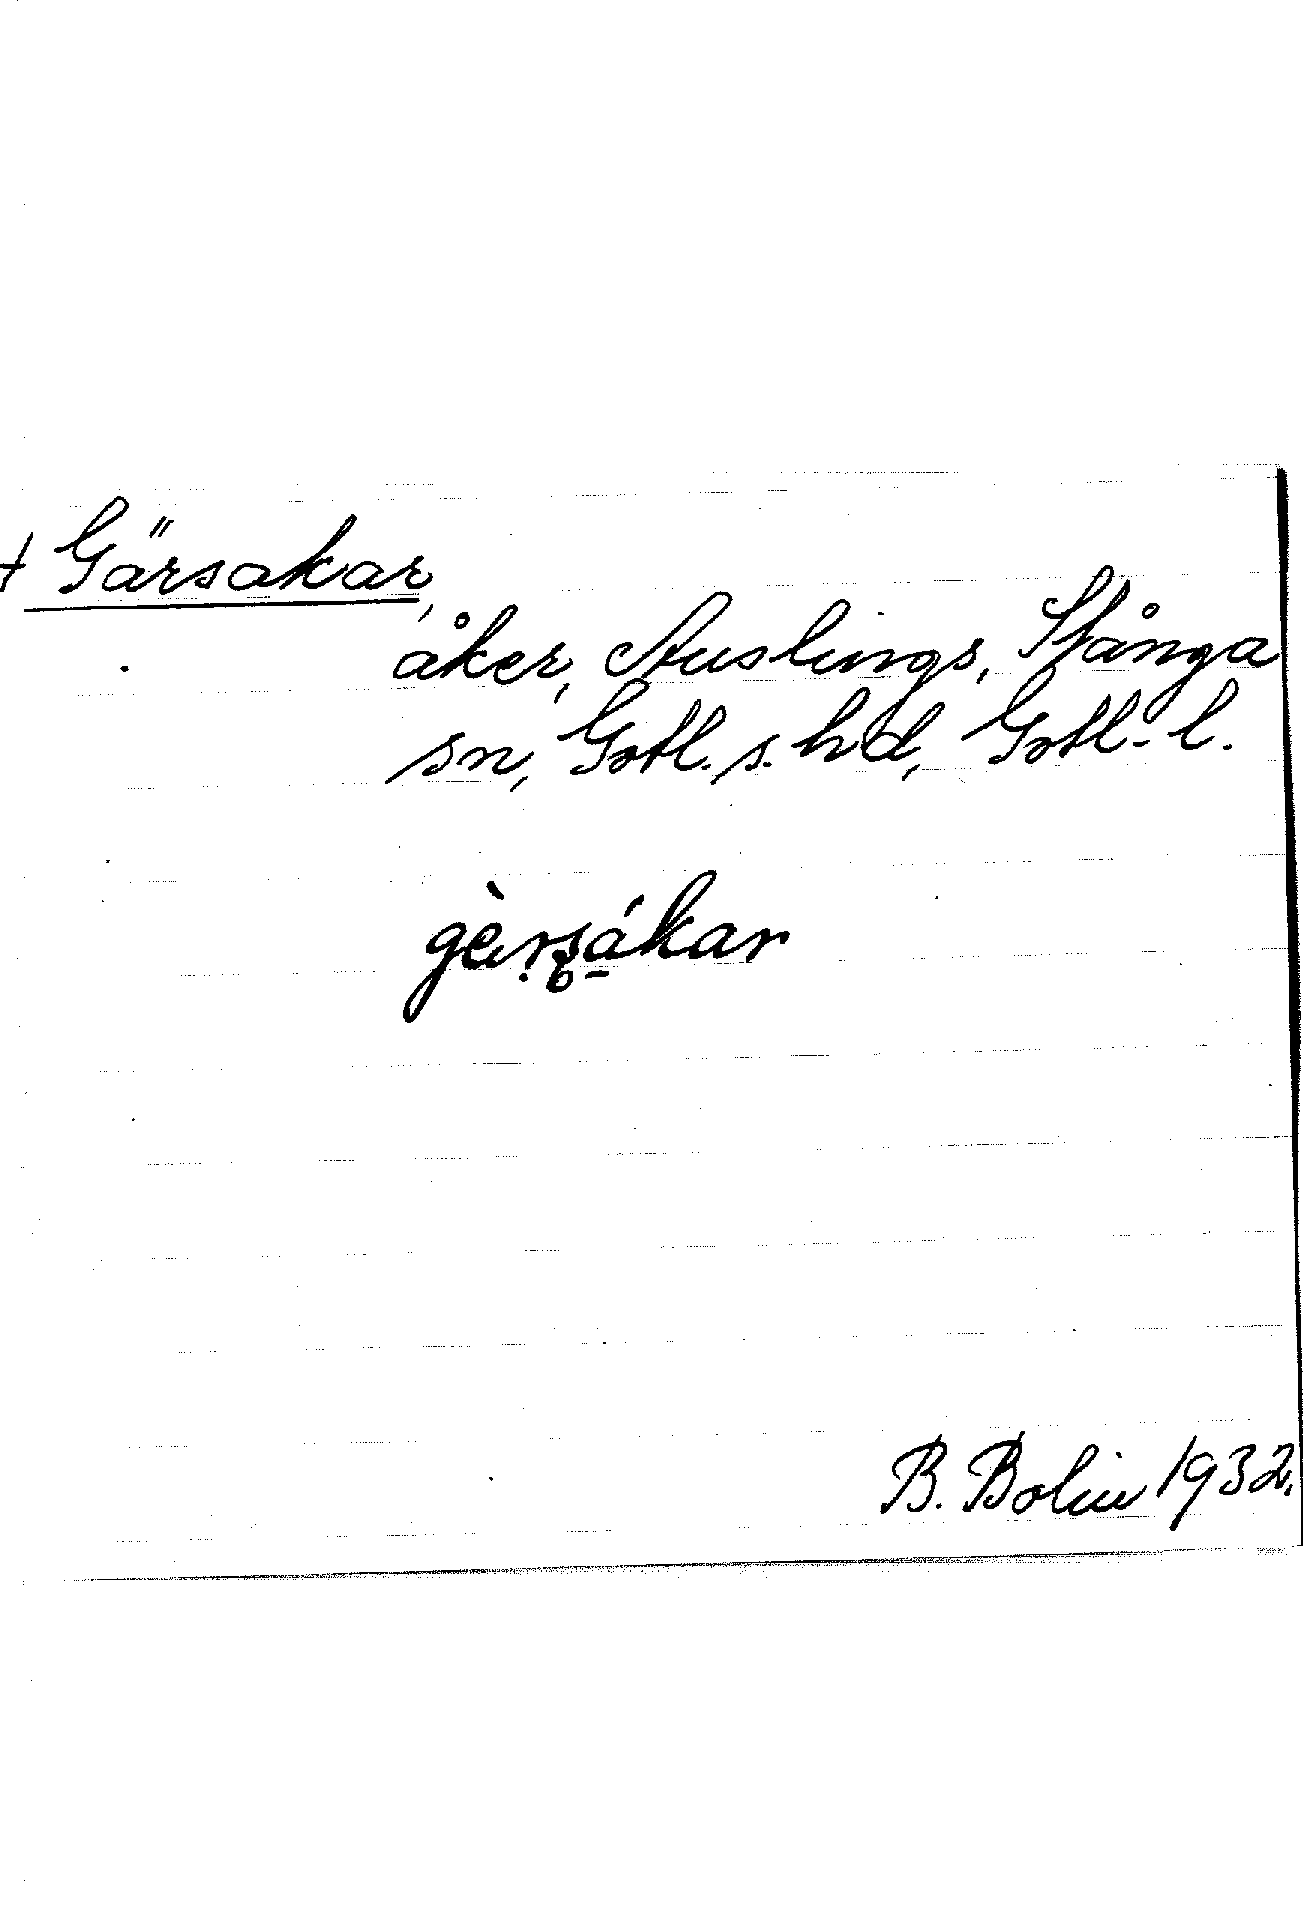 + Gärsakar,
åker, Auslings, Stånga
sn, Gotl. s. hd, Gotl. l.
gèrsákar
B. Bolin 1932.